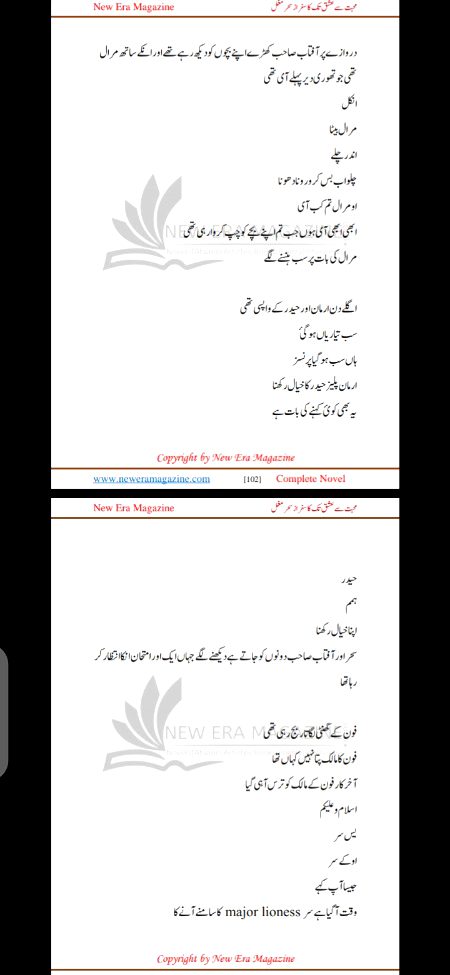 New Era Magazine محبت سے عشق تک کا سفر از سحر مغل
دروازے پر آفتاب صاحب کھڑے اپنے بچوں کو دیکھ رہے تھے اور انکے ساتھ مرال
تھی جو تھوری دیر پہلے آی تھی
انکل
مرال بیٹا
اندر چلے
چلو اب بس کرو رونا دھونا
او مرال تم کب آی
ابھی ابھی آی ہوں جب تم اپنے بچے کو چپ کروا رہی تھی
NEW ERA MAGAZINE
مرال کی بات پر سب ہنسنے لگے
اگلے دن ارمان اور حیدر کے واپسی تھی
سب تیاریاں ہو گئ
ہاں سب ہو گیا پرنسز
ارمان پلیز حیدر کا خیال رکھنا
یہ بھی کوئ کہنے کی بات ہے
Copyright by New Era Magazine
www.neweramagazine.com [102] Complete Novel
New Era Magazine محبت سے عشق تک کا سفر از سحر مغل
حیدر
ہمم
اپنا خیال رکھنا
سحر اور آفتاب صاحب دونوں کو جاتے ہے دیکھنے لگے جہاں ایک اور امتحان انکا انتظار کر
رہا تھا
فون کے گھنٹی لگاتار بج رہی تھی
NEW ERA MAGAZINE
فون کا مالک پتا نہیں کہاں تھا
آخر کار فون کے مالک کو ترس آ ہی گیا
اسلام و علیکم
یس سر
اوکے سر
جیسا آپ کہے
وقت آ گیا ہے سر major lioness کا سامنے آنے کا
Copyright by New Era Magazine